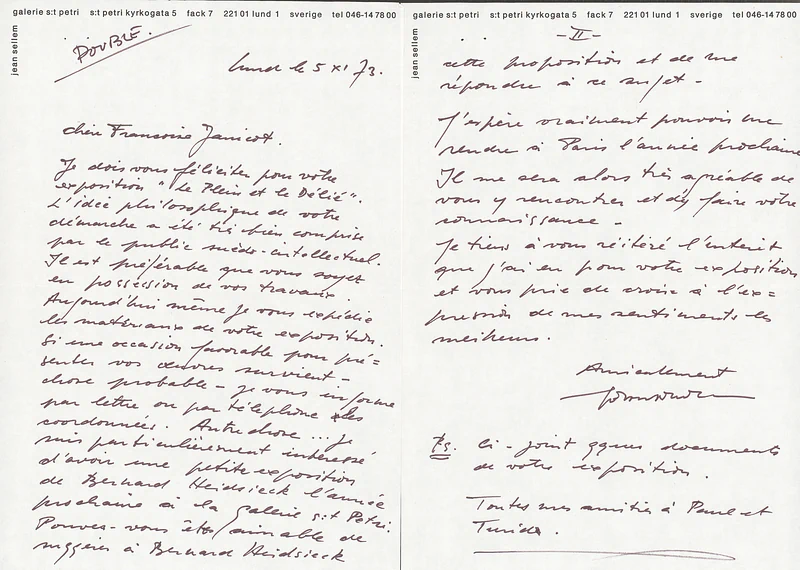 galerie s:t petri s:t petri kyrkogata 5 fack 7 221 01 lund 1 sverige tel 046-14 78 00
jean sellem
DOUBLE.
Lund le 5 XI 73.
chère Françoise Janicot.
Je dois vous féliciter pour votre
exposition "Le Plein et le Délié".
L'idée philosophique de votre
démarche a été très bien comprise
par le public suédo-intellectuel.
Il est préférable que vous soyez
en possession de vos travaux.
Aujourd'hui même je vous expédie
les matériaux de votre exposition.
Si une occasion favorable pour pré=
senter vos œuvres survient -
chose probable - je vous informe
par lettre ou par téléphone des
coordonnées. Autre chose ... je
suis particulièrement intéressé
d'avoir une petite exposition
de Bernard Heidsieck l'année
prochaine à la galerie s:t Petri.
Pouvez-vous être aimable de
suggérer à Bernard Heidsieck
galerie s:t petri s:t petri kyrkogata 5 fack 7 221 01 lund 1 sverige tel 046-14 78 00
jean sellem
- II -
cette proposition et de me
répondre à ce sujet -
J'espère vraiment pouvoir me
rendre à Paris l'année prochaine
Il me sera alors très agréable de
vous y rencontrer et d'y faire votre
connaissance -
Je tiens à vous réitéré l'intérêt
que j'ai eu pour votre exposition
et vous prie de croire à l'ex=
pression de mes sentiments les
meilleurs.
Amicalement
Ps. Ci-joint qques documents
de votre exposition.
Toutes mes amitiés à Paul et